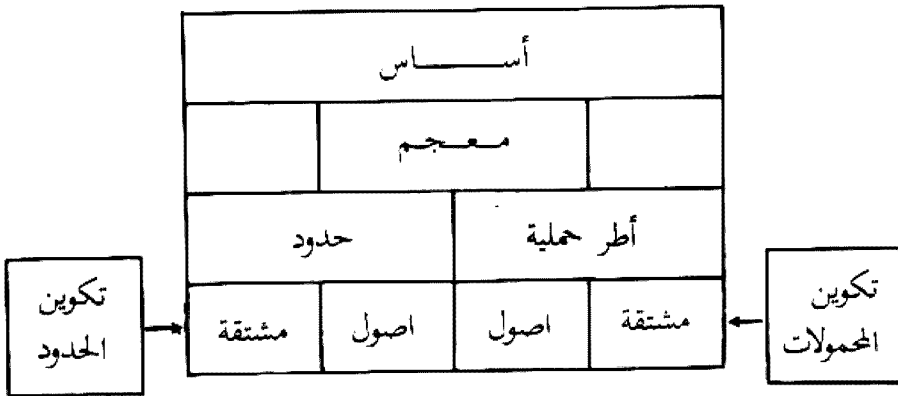 أســـــاس
مـعـجـم
أطر حملية
حدود
تكوين
المحمولات
مشتقة
اصول
اصول
مشتقة
تكوين
الحدود